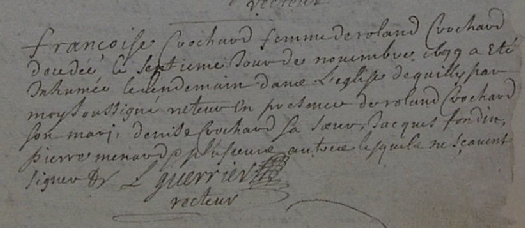 recteur
françoise Crochard femme de roland Crochard
decedée le septieme Jour de novembre 1699 a Eté
Inhumée le lendemain dans L'eglise de quilly par
moy soussigné recteur En presence de roland Crochard
son mari, denise Crochard sa sœur, Jacques fondin,
pierre menard & plusieurs autres lesquels ne scavent
signer &
L guerrier
recteur